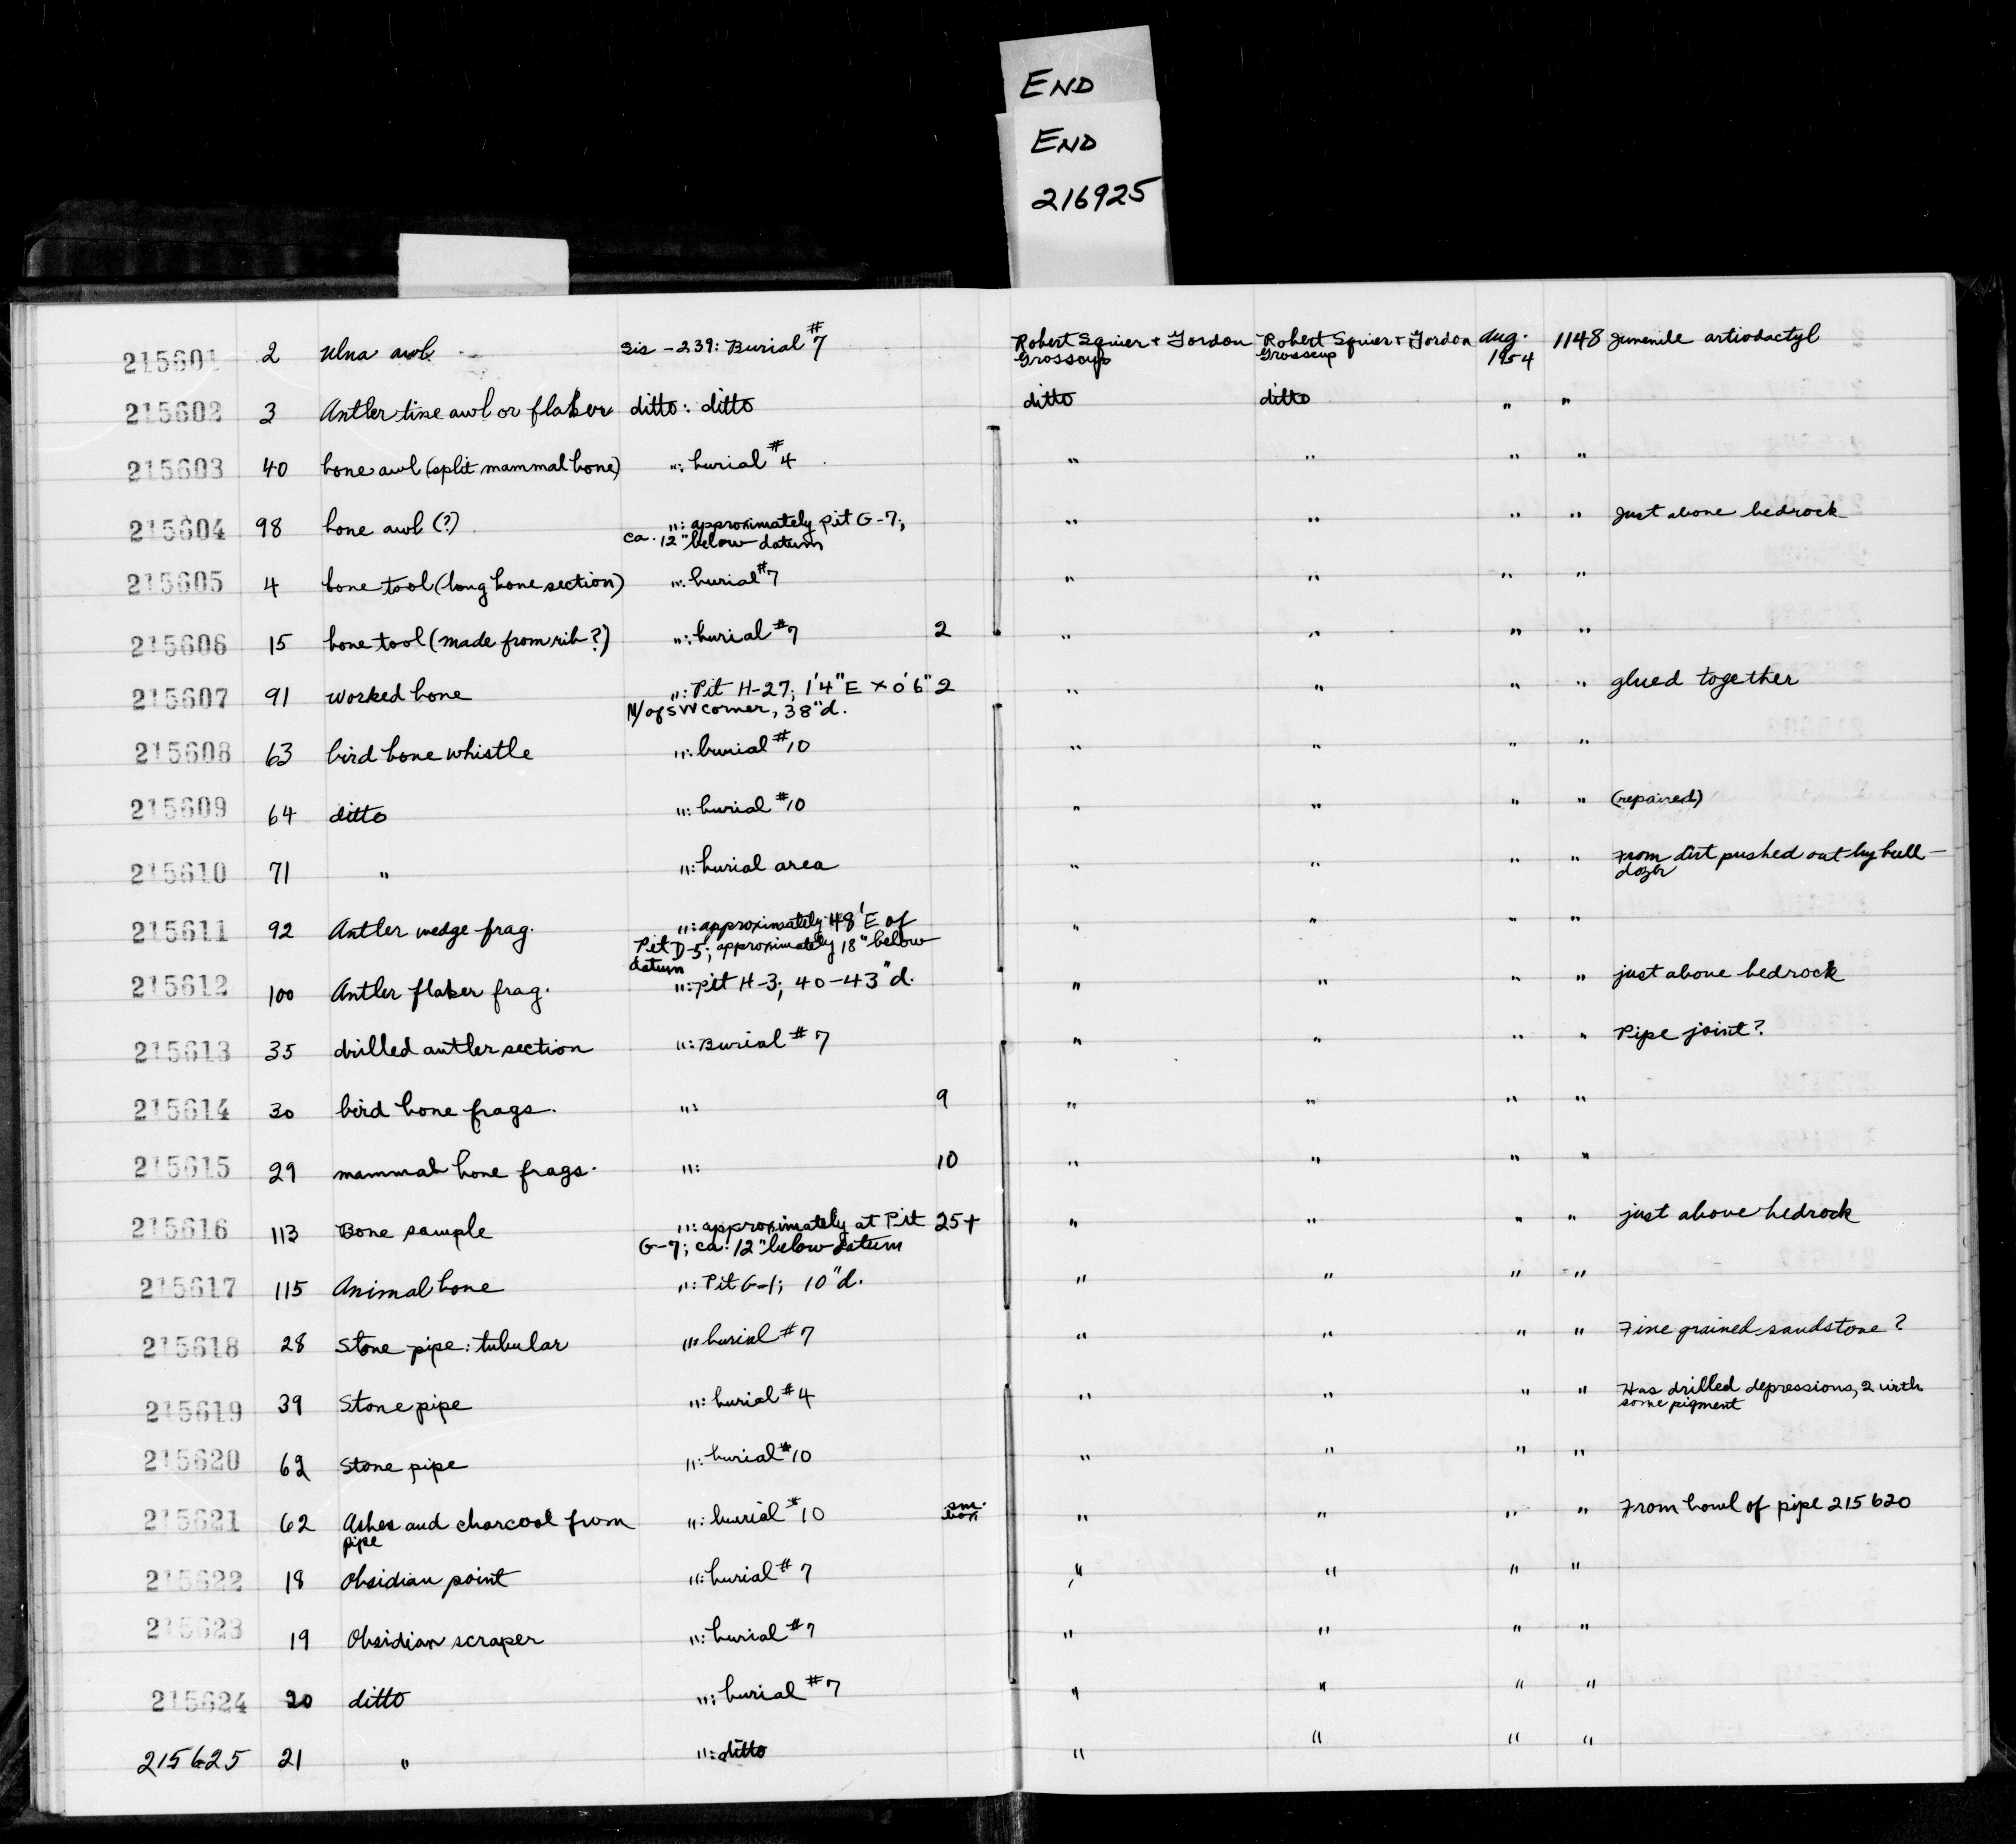 END
END
216925
215601 2 Ulna awl Sis-239: Burial #7 Robert Squier + Gordon Grosscup Robert Squier + Gordon Grosscup Aug. 1954 1148 Juvenile artiodactyl
215602 3 Antler tine awl or flaker ditto: ditto ditto ditto " "
215603 40 bone awl (split mammal bone) ": burial #4 " " " "
215604 98 bone awl (?) ": approximately pit G-7; ca. 12" below datum " " " " Just above bedrock
215605 4 bone tool (long bone section) ": burial #7 " " " "
215606 15 bone tool (made from rib?) ": burial #7 2 " " " "
215607 91 Worked bone ": Pit H-27; 1'4" E x 0'6" N/of SW corner, 38" d. 2 " " " " glued together
215608 63 bird bone whistle ": burial #10 " " " "
215609 64 ditto ": burial #10 " " " " (repaired)
215610 71 " ": burial area " " " " From dirt pushed out by bull-dozer
215611 92 Antler wedge frag. ": approximately 48' E of Pit D-5; approximately 18" below datum " " " "
215612 100 Antler flaker frag. ": pit H-3; 40-43" d. " " " " just above bedrock
215613 35 drilled antler section ": Burial #7 " " " " Pipe joint?
215614 30 bird bone frags. ": 9 " " " "
215615 29 mammal bone frags. ": 10 " " " "
215616 113 Bone sample ": approximately at Pit G-7; ca. 12" below datum 25+ " " " " just above bedrock
215617 115 Animal bone ": Pit G-1; 10" d. " " " "
215618 28 Stone pipe: tubular ": burial #7 " " " " Fine grained sandstone?
215619 39 Stone pipe ": burial #4 " " " " Has drilled depressions, 2 with some pigment
215620 62 Stone pipe ": burial #10 " " " "
215621 62 Ashes and charcoal from pipe ": burial #10 sm. box " " " " From bowl of pipe 215620
215622 18 Obsidian point ": burial #7 " " " "
215623 19 Obsidian scraper ": burial #7 " " " "
215624 20 ditto ": burial #7 " " " "
215625 21 " ": ditto " " " "